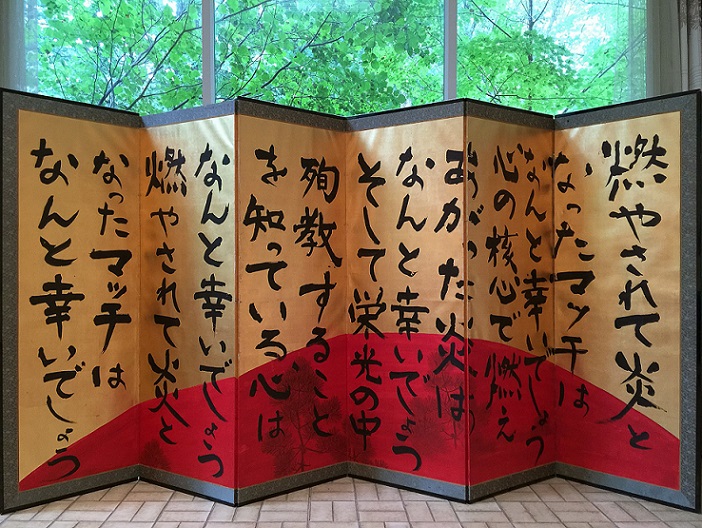 燃やされて炎と
なったマッチは
なんと幸いでしょう
心の核心で燃え
あがった炎は
なんと幸いでしょう
そして栄光の中
殉教すること
を知っている心は
なんと幸いでしょう
燃やされて炎と
なったマッチは
なんと幸いでしょう